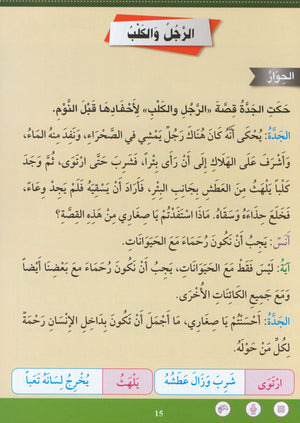 الرَّجُلُ وَالكَلْبُ
الحِوَارُ
حَكَتِ الجَدَّةُ قِصَّةَ «الرَّجُلِ والكَلْبِ» لِأَحْفَادِهَا قَبْلَ النَّوْمِ.
الجَدَّةُ: يُحْكَى أَنَّهُ كَانَ هُنَاكَ رَجُلٌ يَمْشِي في الصَّحْرَاءِ، وَنَفِدَ مِنْهُ المَاءُ،
وَأَشْرَفَ عَلَى الهَلَاكِ إِلَى أَنْ رَأَى بِئْراً، فَشَرِبَ حَتَّى ارْتَوَى، ثُمَّ وَجَدَ
كَلْباً يَلْهَثُ مِنَ العَطَشِ بِجَانِبِ البِئْرِ، فَأَرَادَ أَنْ يَسْقِيَهُ فَلَمْ يَجِدْ وِعَاءً،
فَخَلَعَ حِذَاءَهُ وَسَقَاهُ. مَاذَا اسْتَفَدْتُمْ يَا صِغَارِي مِنْ هَذِهِ القِصَّةِ؟
أَنَسٌ: يَجِبُ أَنْ نَكُونَ رُحَمَاءَ مَعَ الحَيَوَانَاتِ.
آيَةُ: لَيْسَ فَقَطْ مَعَ الحَيَوَانَاتِ، يَجِبُ أَنْ نَكُونَ رُحَمَاءَ مَعَ بَعْضِنَا أَيْضاً
وَمَعَ جَمِيعِ الكَائِنَاتِ الأُخْرَى.
الجَدَّةُ: أَحْسَنْتُمْ يَا صِغَارِي، مَا أَجْمَلَ أَنْ تَكُونَ بِدَاخِلِ الإِنْسَانِ رَحْمَةٌ
لِكُلِّ مَنْ حَوْلَهُ.
ارْتَوَى شَرِبَ وَزَالَ عَطَشُهُ يَلْهَثُ يُخْرِجُ لِسَانَهُ تَعَباً
15